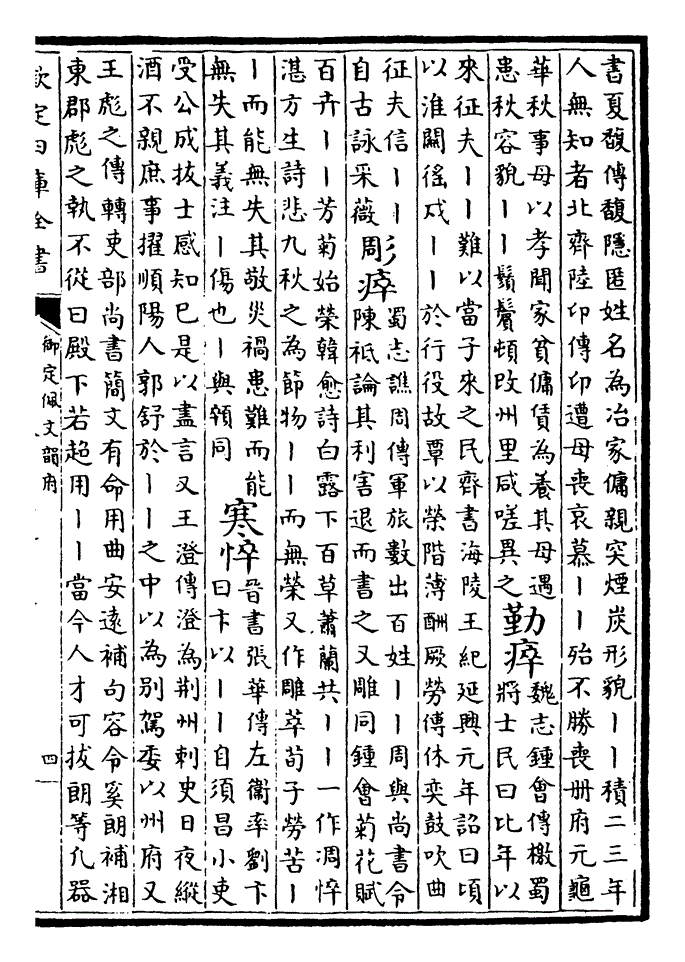 書夏馥傳馥隱匿姓名為冶家傭親突煙炭形貌丨丨積二三年
人無知者北齊陸卬傳卬遭母喪哀慕丨丨殆不勝喪册府元龜
華秋事母以孝聞家貧傭賃為養其母遇
患秋容貌丨丨鬚鬢頓改州里咸嗟異之
勤瘁
魏志鍾會傳檄蜀
將士民曰比年以
來征夫丨丨難以當子來之民齊書海陵王紀延興元年詔曰頃
以淮關徭戍丨丨於行役故覃以榮階薄酬厥勞傅休奕鼓吹曲
征夫信丨丨
自古詠采薇
彫瘁
蜀志譙周傳軍旅數出百姓丨丨周與尚書令
陳祗論其利害退而書之又雕同鍾會菊花賦
百卉丨丨芳菊始榮韓愈詩白露下百草蕭蘭共丨丨一作凋悴
湛方生詩悲九秋之為節物丨丨而無榮又作雕萃荀子勞苦丨
丨而能無失其敬災禍患難而能
無失其義注丨傷也丨與顇同
寒悴
晉書張華傳左衞率劉卞
曰卞以丨丨自須昌小吏
受公成拔士感知已是以盡言又王澄傳澄為荆州刺史日夜縱
酒不親庶事擢順陽人郭舒於丨丨之中以為别駕委以州府又
王彪之傳轉吏部尚書簡文有命用曲安遠補句容令奚朗補湘
東郡彪之執不從曰殿下若超用丨丨當今人才可拔朗等凡器
欽定四庫全書
御定佩文韻府
四